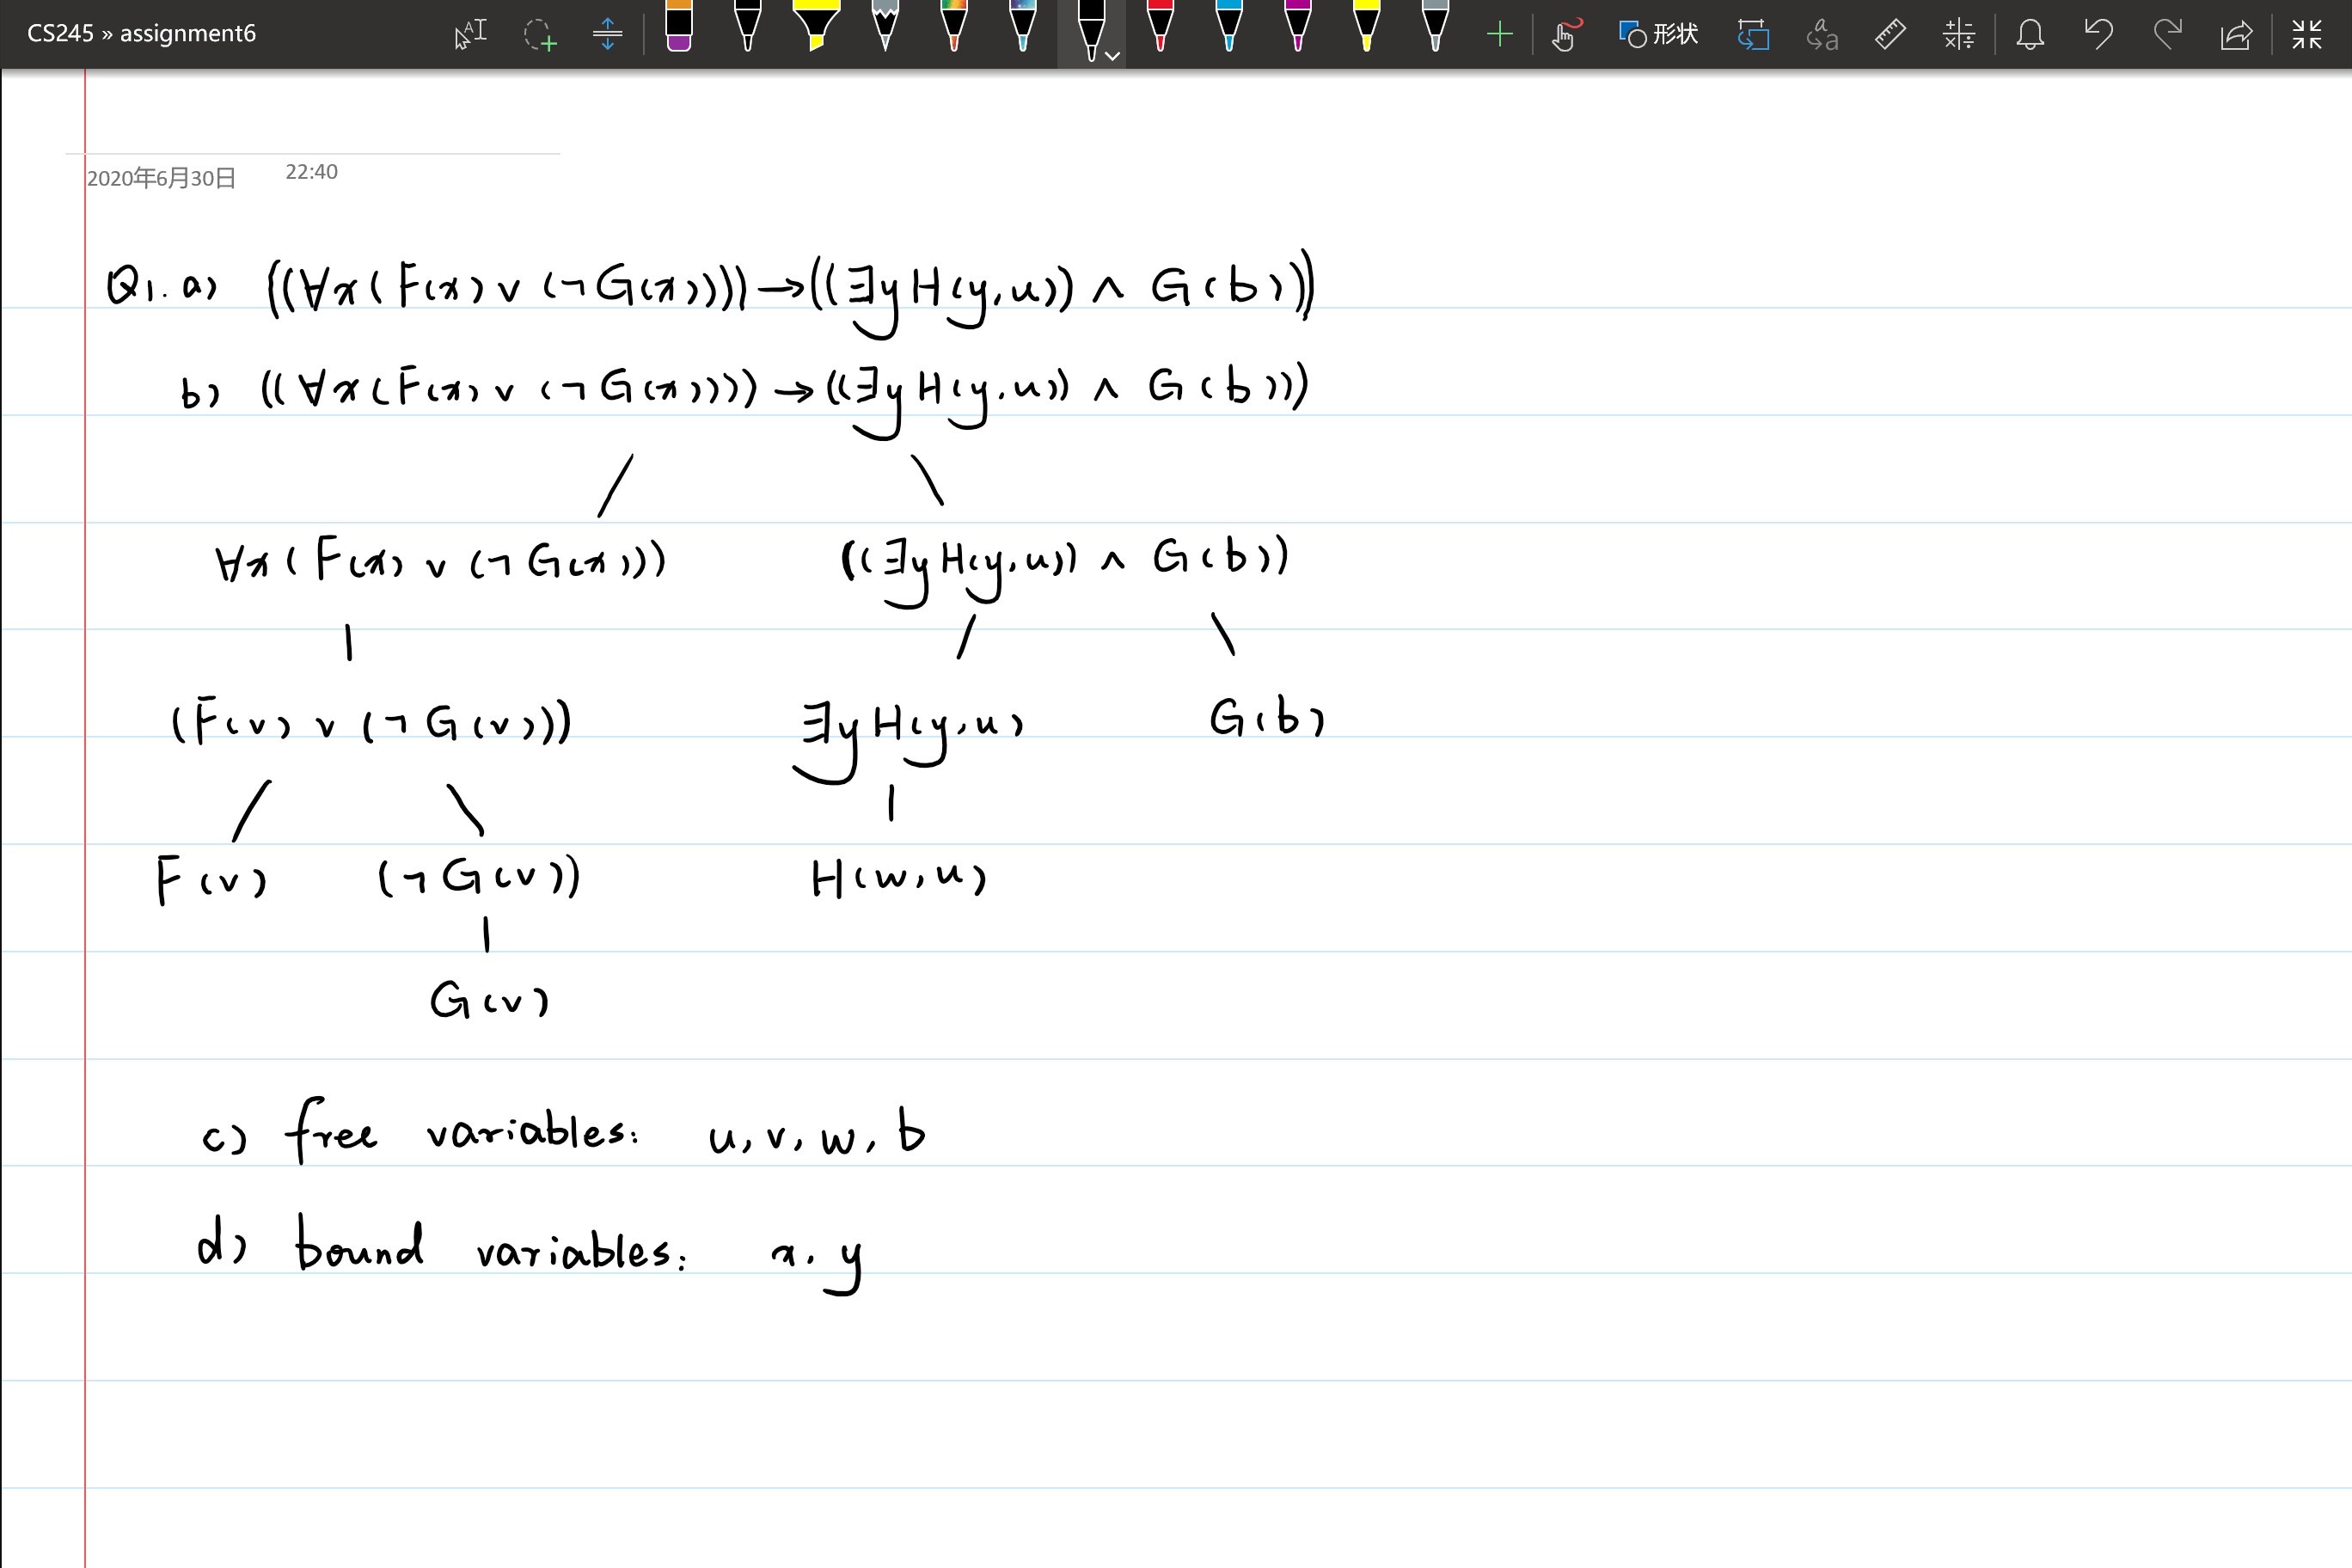 CS245 » assignment6
形状
2020年6月30日 22:40
Q1. a) ((∀x(F(x) ∨ (¬G(x)))) → ((∃y H(y, u)) ∧ G(b)))
b) ((∀x(F(x) ∨ (¬G(x)))) → ((∃y H(y, u)) ∧ G(b)))
∀x(F(x) ∨ (¬G(x))) ((∃y H(y, u)) ∧ G(b))
(F(v) ∨ (¬G(v))) ∃y H(y, u) G(b)
F(v) (¬G(v)) H(w, u)
G(v)
c) free variables: u, v, w, b
d) bound variables: x, y